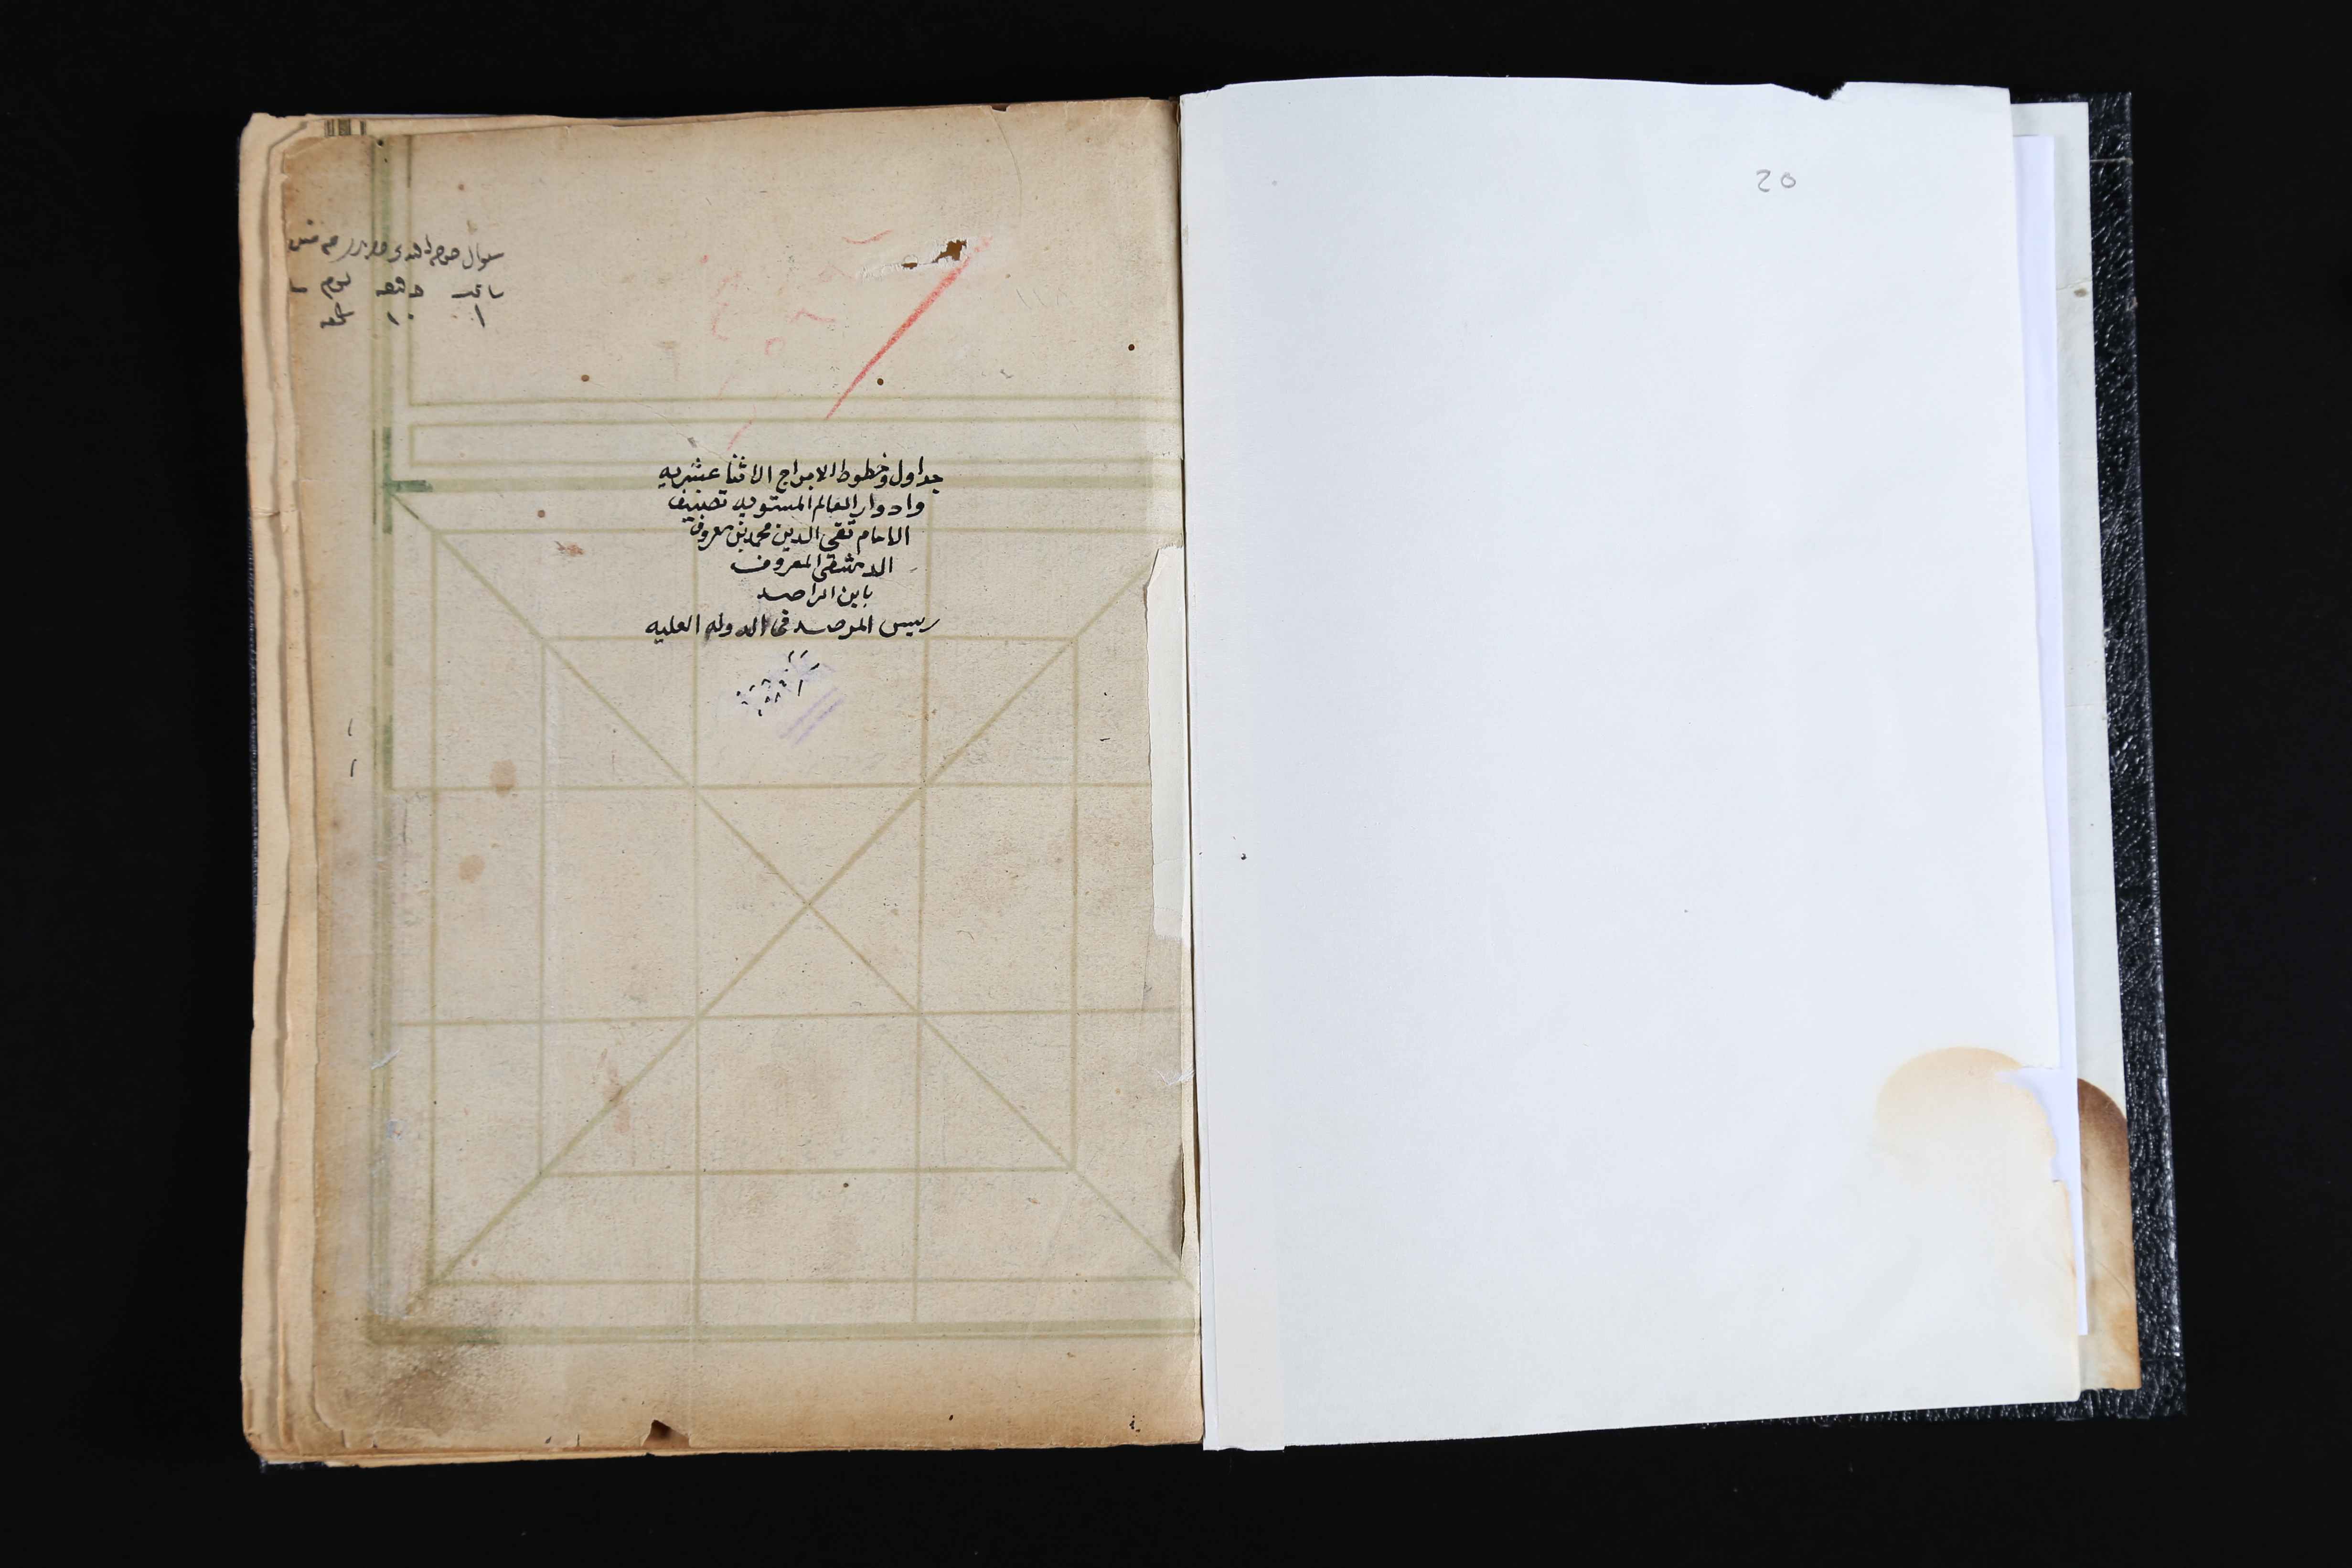 20
سوال
ساعت دقيقه يوم
١ ١٠
جداول وخطوط الابراج الاثنا عشريه
وادوار العالم المستويه تصنيف
الامام تقى الدين محمد بن معروف
الدمشقى المعروف
بابن الراصد
رييس المرصد فى الدوله العليه